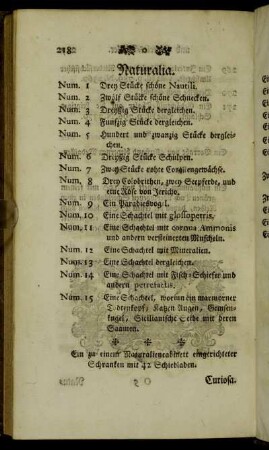 218
o
Naturalia.
Num. 1 Drey Stücke schöne Nautili.
Num. 2 Zwölf Stücke schöne Schnecken.
Num. 3 Dreyßig Stücke dergleichen.
Num. 4 Funfzig Stücke dergleichen.
Num. 5 Hundert und zwanzig Stücke derglei-
chen.
Num. 6 Dreyßig Stücke Schulpen.
Num. 7 Zwey Stücke rothe Corallengewächse.
Num. 8 Drey Colobrithen, zwey Seepferde, und
eine Rose von Jericho.
Num. 9 Ein Paradiesvogel.
Num. 10 Eine Schachtel mit glossopetris.
Num. 11 Eine Schachtel mit cornua Ammonis
und andern versteinerten Muscheln.
Num. 12 Eine Schachtel mit Mineralien.
Num. 13 Eine Schachtel dergleichen.
Num. 14 Eine Schachtel mit Fisch-Schiefer und
andern petrefactis.
Num. 15 Eine Schachtel, worinn ein marmorner
Todtenkopf, Katzen Augen, Gemsen-
kugel, Sicilianische Seide mit deren
Saamen.
Ein zu einem Naturaliencabinett eingerichteter
Schranken mit 42 Schiebladen.
Curiosa.